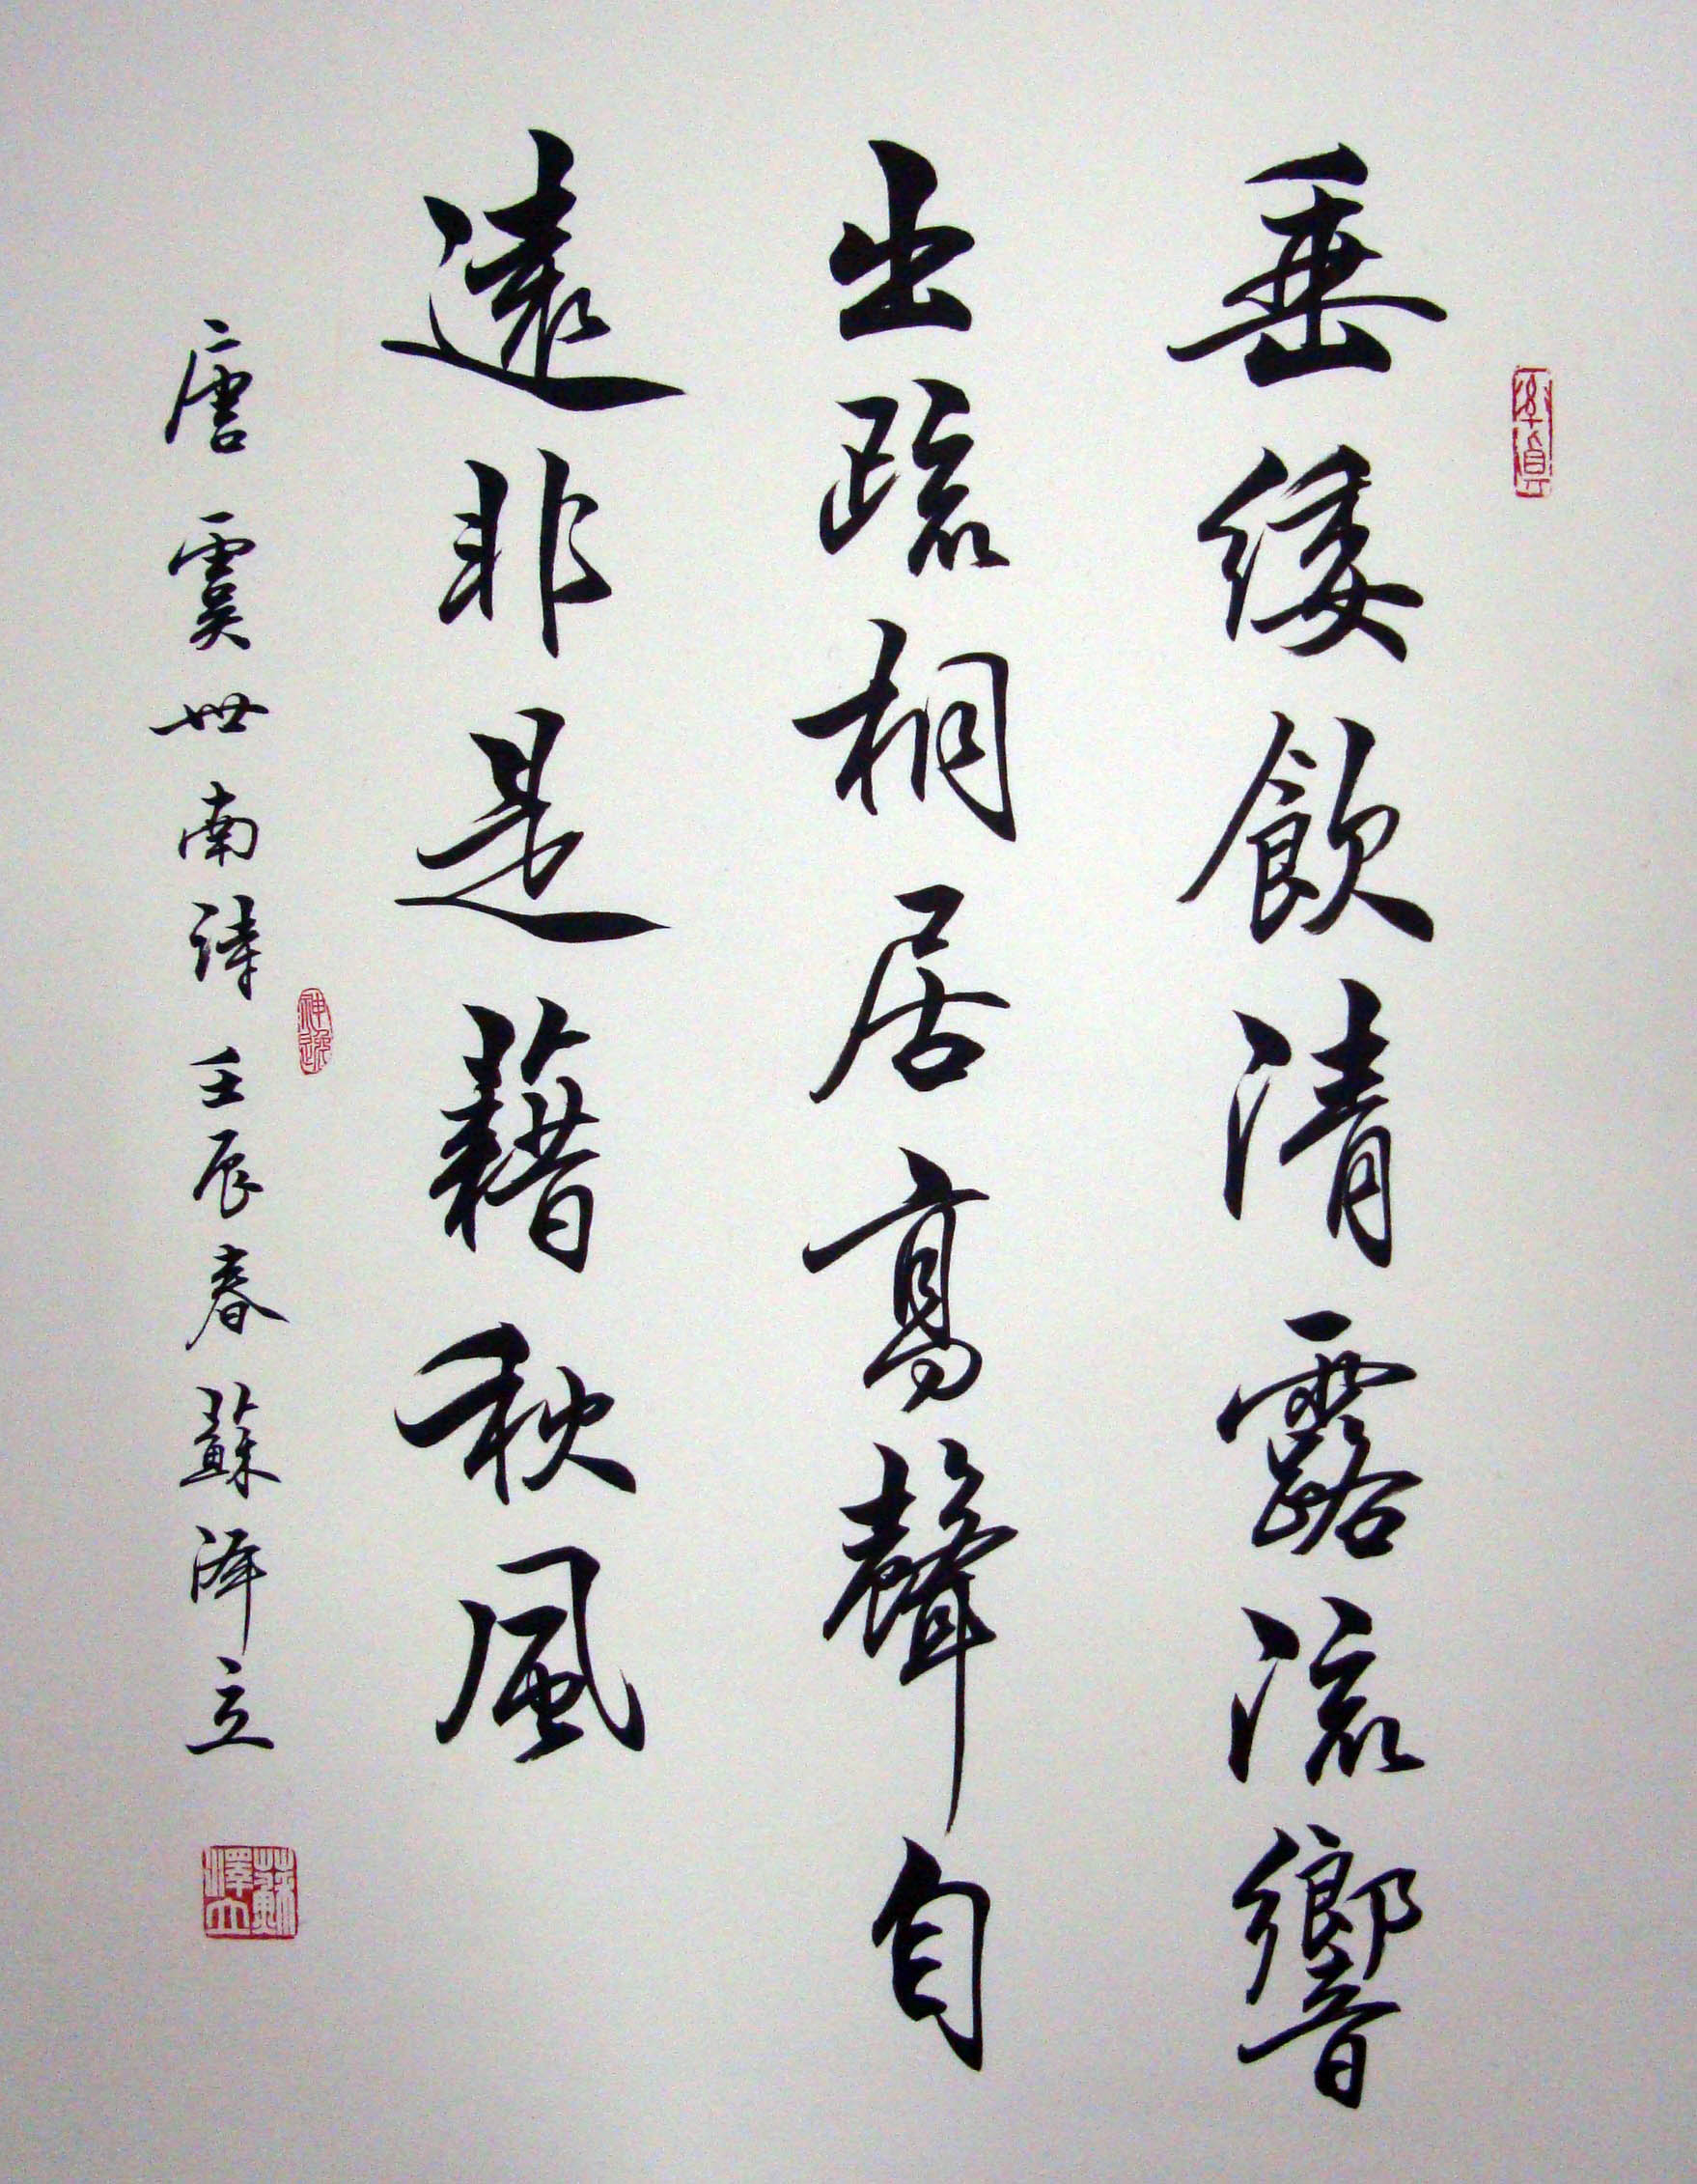 垂緌飲清露流響
出疏桐居高聲自
遠非是藉秋風
唐虞世南詩壬辰春蘇澤立
神逸
蘇澤立